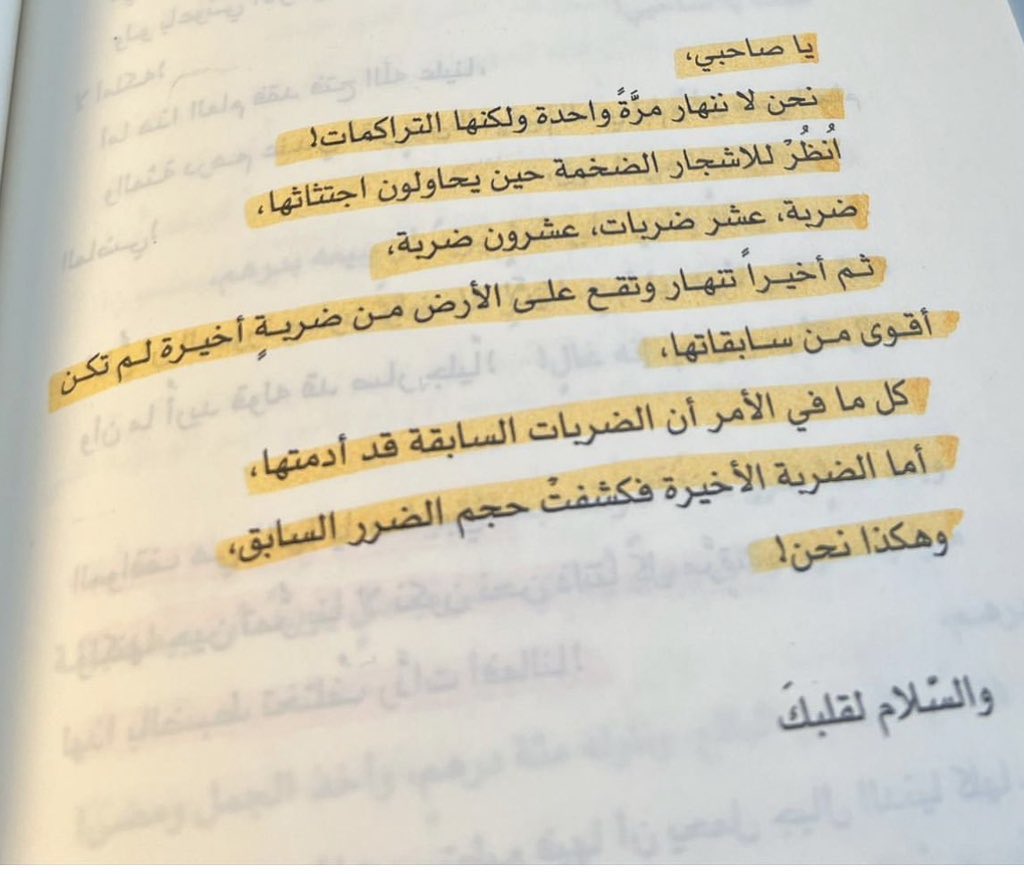 يا صاحبي،
نحن لا ننهار مرَّةً واحدة ولكنها التراكمات!
اُنظُرْ للاشجار الضخمة حين يحاولون اجتثاثها،
ضربة، عشر ضربات، عشرون ضربة،
ثم أخيراً تنهار وتقع على الأرض من ضربةٍ أخيرة لم تكن
أقوى من سابقاتها،
كل ما في الأمر أن الضربات السابقة قد أدمتها،
أما الضربة الأخيرة فكشفتْ حجم الضرر السابق،
وهكذا نحن!
والسّلام لقلبكَ